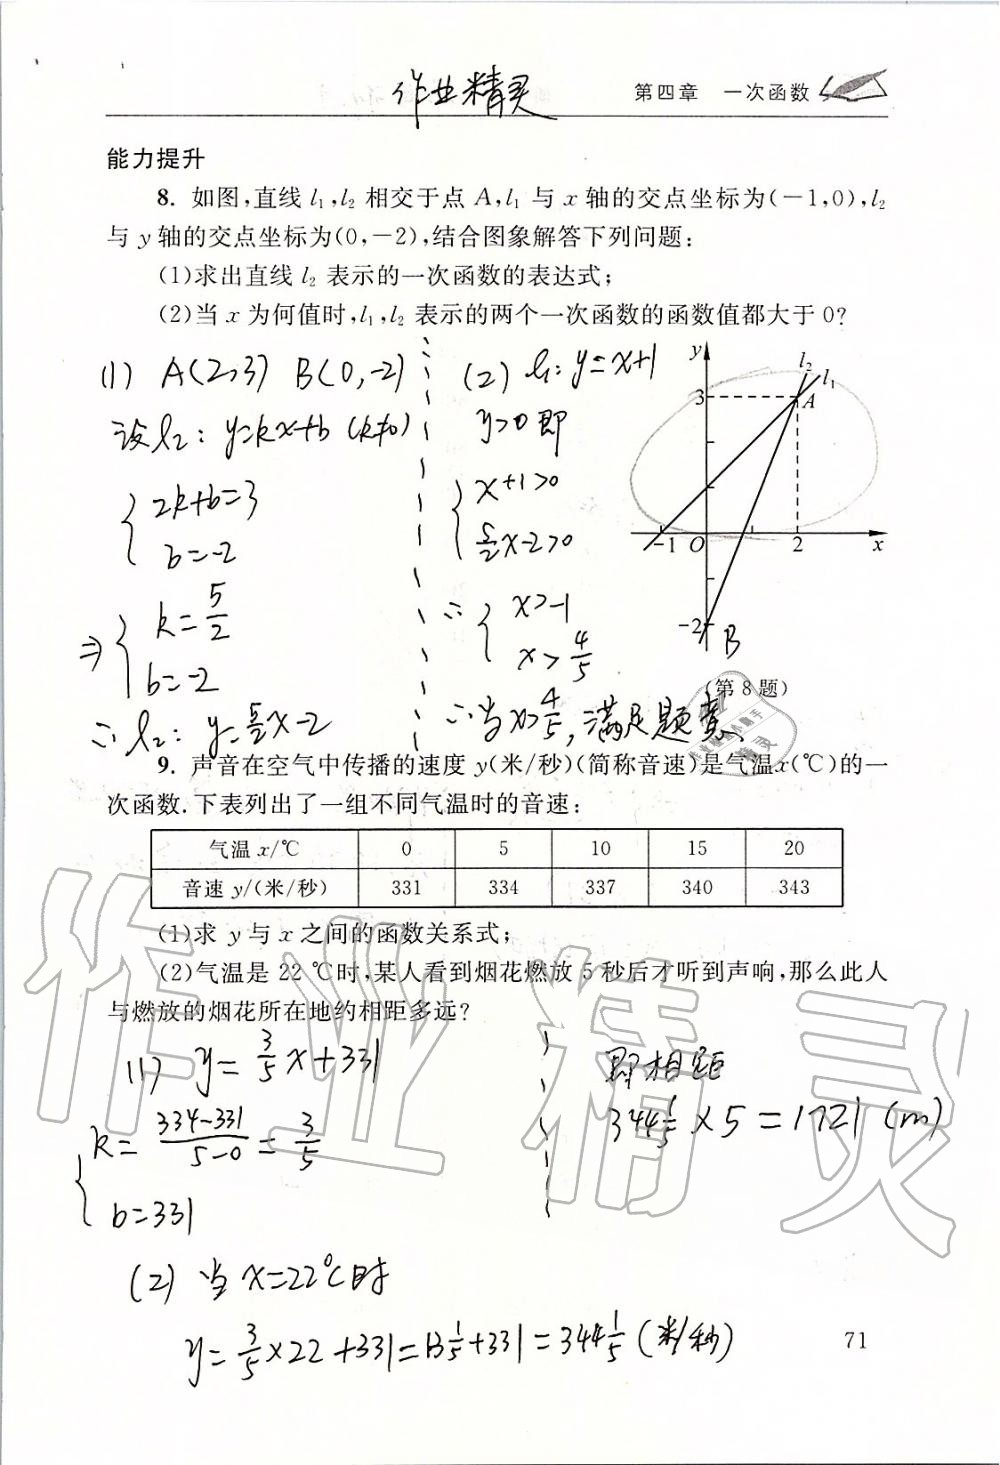 作业精灵
第四章 一次函数
能力提升
8. 如图,直线 l₁,l₂ 相交于点 A,l₁ 与 x 轴的交点坐标为(-1,0),l₂
与 y 轴的交点坐标为(0,-2),结合图象解答下列问题:
(1)求出直线 l₂ 表示的一次函数的表达式;
(2)当 x 为何值时,l₁,l₂ 表示的两个一次函数的函数值都大于 0?
(1) A(2,3) B(0,-2)
设l₂: y=kx+b (k≠0)
{2k+b=3
b=-2
⇒ {k=5/2
b=-2
∴ l₂: y=5/2x-2
(2) l₁: y=x+1
y>0 即
{x+1>0
5/2x-2>0
∴ {x>-1
x>4/5
∴当x>4/5,满足题意
y
l₂
l₁
3
A
-1 O 2 x
-2
B
(第 8 题)
9. 声音在空气中传播的速度 y(米/秒)(简称音速)是气温x(℃)的一
次函数.下表列出了一组不同气温时的音速:
气温 x/℃ 0 5 10 15 20
音速 y/(米/秒) 331 334 337 340 343
(1)求 y 与 x 之间的函数关系式;
(2)气温是 22 ℃时,某人看到烟花燃放 5 秒后才听到声响,那么此人
与燃放的烟花所在地约相距多远?
(1) y=3/5x+331
{k=(334-331)/(5-0)=3/5
b=331
(2) 当x=22℃时
y=3/5×22+331=13 1/5+331=344 1/5(米/秒)
即相距
344 1/5×5=1721(m)
71
作业精灵